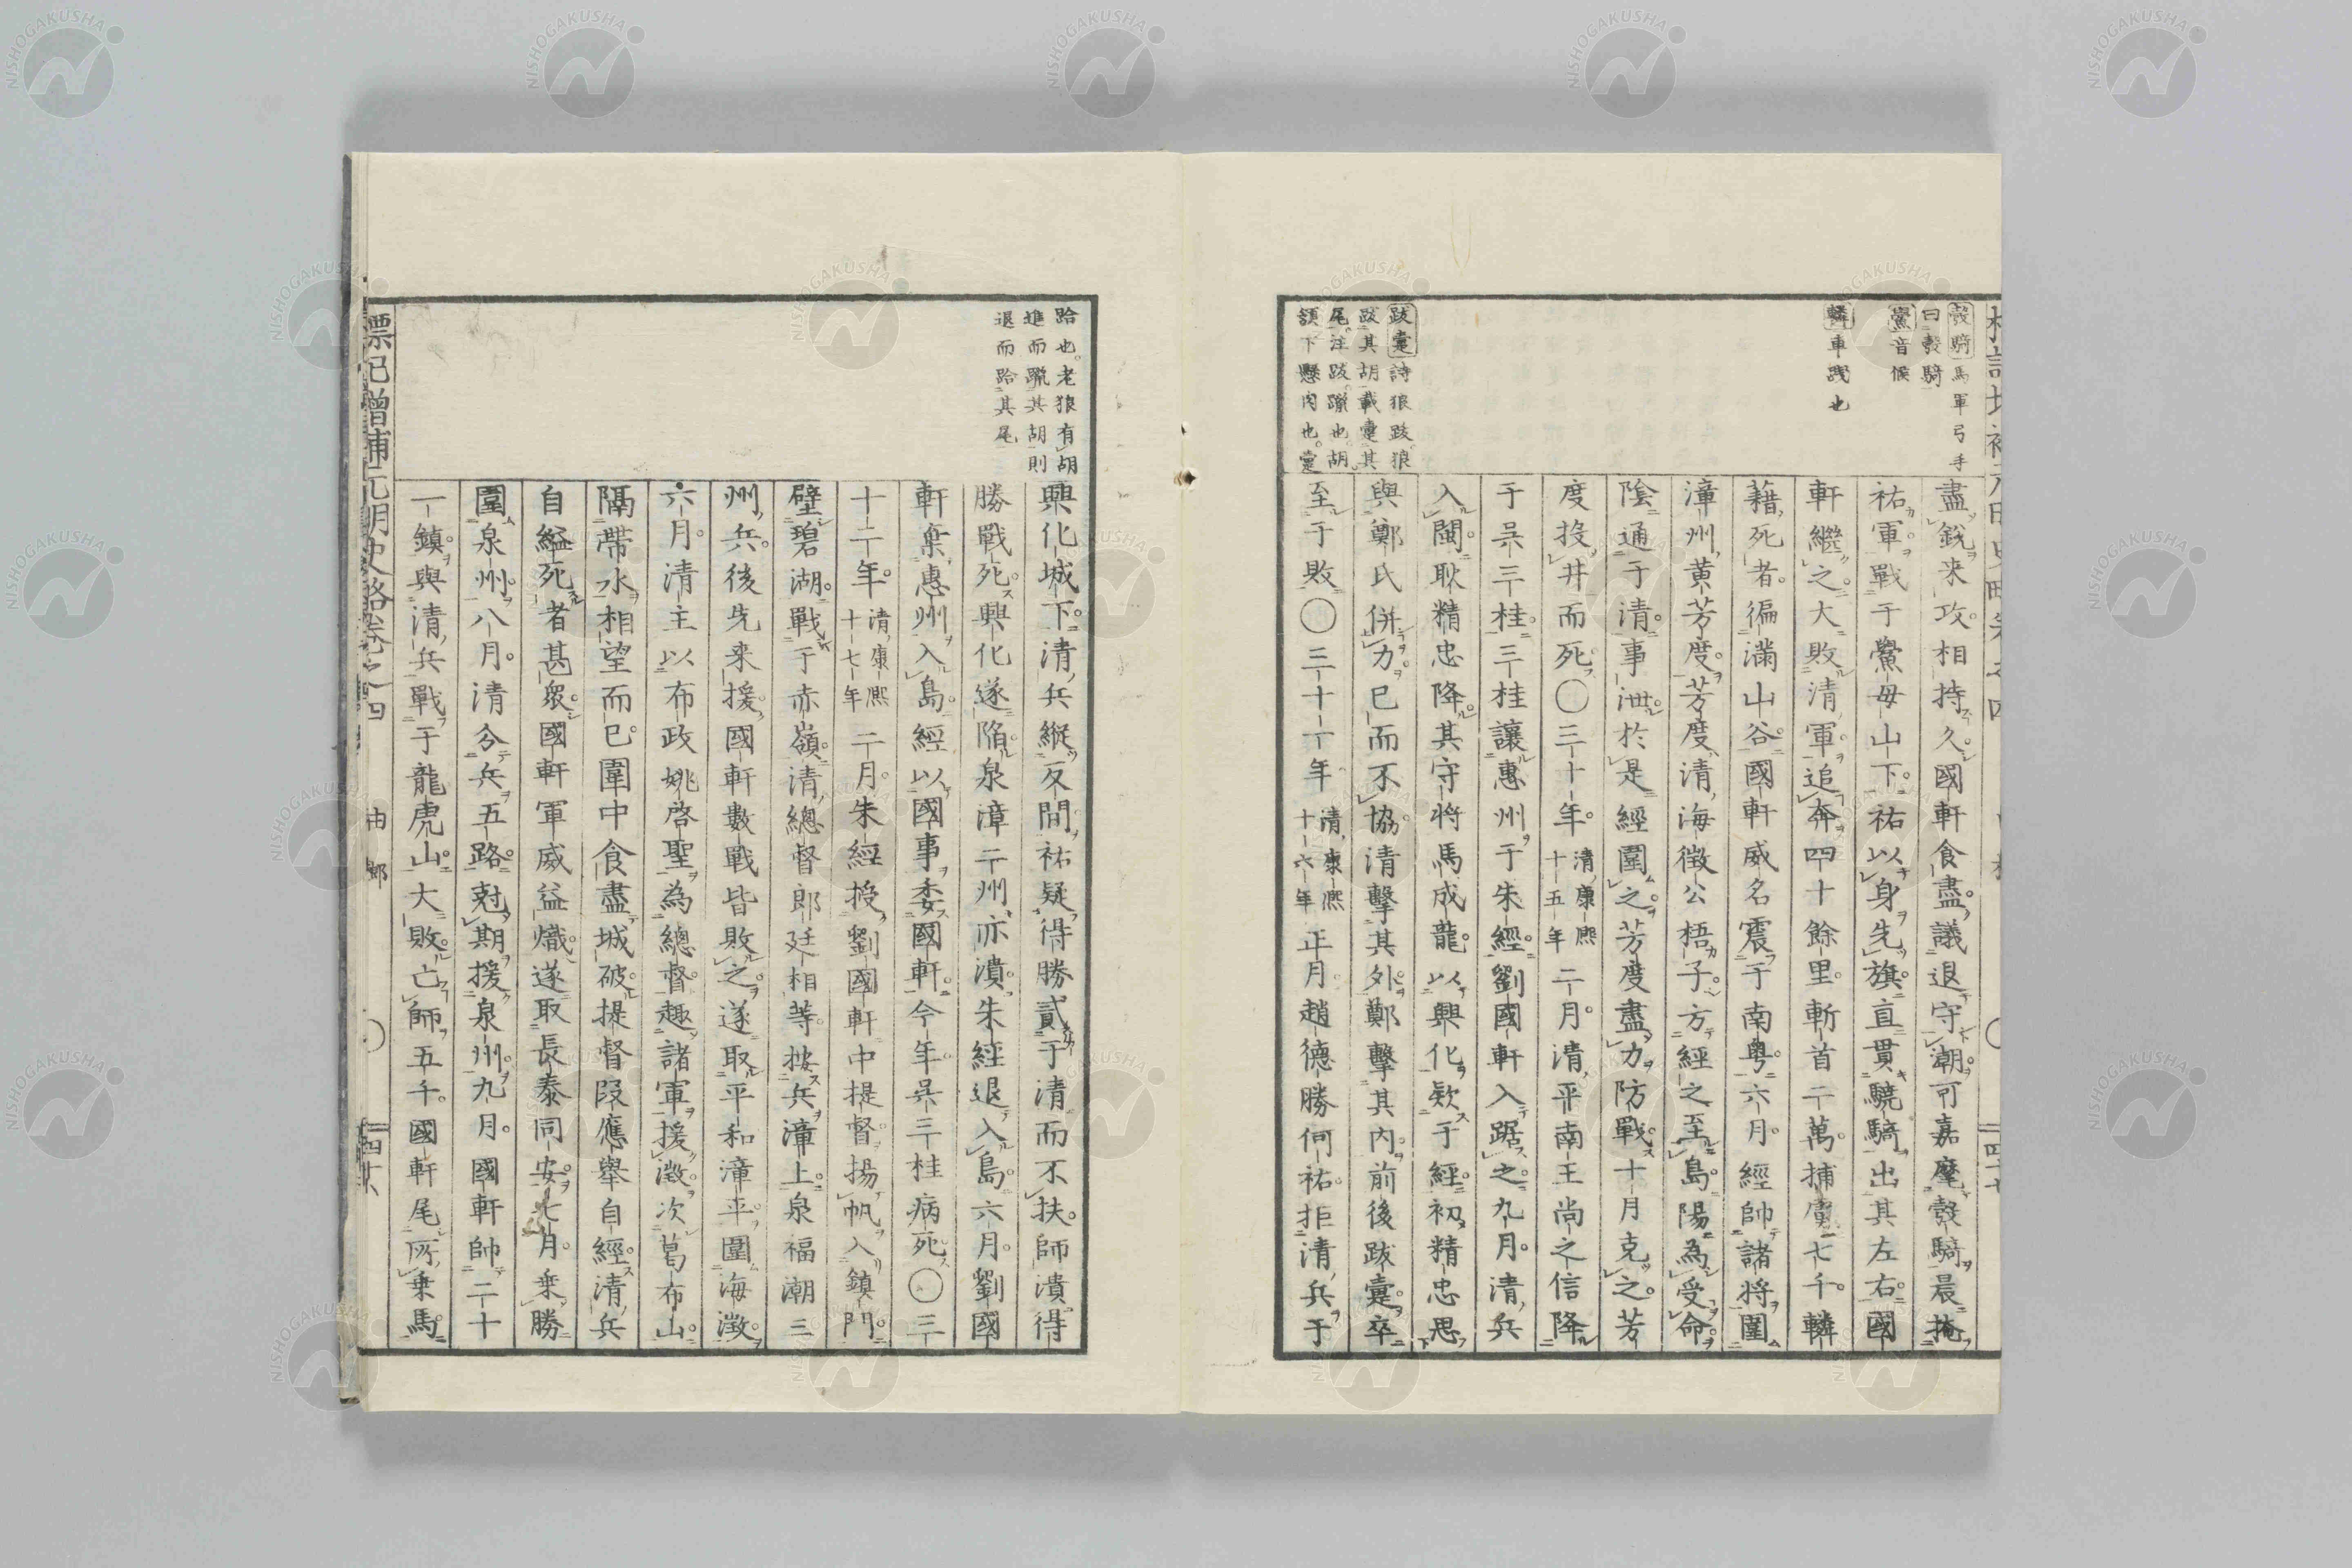 彀騎馬軍弓手
曰彀騎
鱟音候
轔車踐也
跋疐詩狼跋狼
跋其胡載疐其
尾注跋躐也胡
頷下懸肉也疐
盡鋭来攻相持久國軒食盡議退守潮可嘉摩彀騎晨掩
祐軍戰于鱟母山下祐以身先旗直貫驍騎出其左右國
軒繼之大敗清軍追奔四十餘里斬首二萬捕虜七千轔
藉死者徧滿山谷國軒威名震于南粤六月經帥諸将圍
漳州黄芳度芳度清海徵公梧子方經之至島陽為受命
陰通于清事泄於是經圍之芳度盡力防戰十月克之芳
度投井而死〇三十年清康熙十五年二月清平南王尚之信降
于呉三桂三桂讓惠州于朱經劉國軒入踞之九月清兵
入閩耿精忠降其守将馬成龍以興化欵于經初精忠思
與鄭氏併力已而不協清擊其外鄭擊其内前後跋疐卒
至于敗〇三十一年清康熙十六年正月趙德勝何祐拒清兵于
跲也老狼有胡
進而躐其胡則
退而跲其尾
興化城下清兵縱反間祐疑得勝貳于清而不扶師潰得
勝戰死興化遂陥泉漳二州亦潰朱經退入島六月劉國
軒棄惠州入島經以國事委國軒今年呉三桂病死〇三
十二年清康熙十七年二月朱經授劉國軒中提督揚帆入鎮門
壁碧湖戰于赤嶺清總督郎廷相等按兵漳上泉福潮三
州兵後先来援國軒數戰皆敗之遂取平和漳平圍海澂
六月清主以布政姚啓聖為總督趣諸軍援澂次葛布山
隔帶水相望而已圍中食盡城破提督段應舉自經清兵
自縊死者甚衆國軒軍威益熾遂取長泰同安七月乗勝
圍泉州八月清分兵五路尅期援泉州九月國軒帥二十
一鎮與清兵戰于龍虎山大敗亡師五千國軒尾所乗馬
標記增補元明史略卷之四